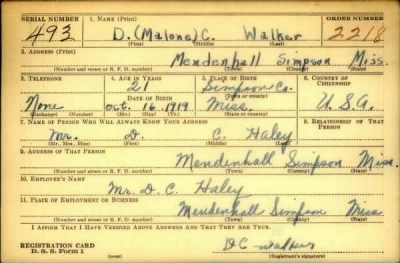 SERIAL NUMBER 1. NAME (Print) ORDER NUMBER
493 D. (Malone) C. Walker 2218
(First) (Middle) (Last)
2. ADDRESS (Print)
Mendenhall Simpson Miss.
(Number and street or R. F. D. number) (Town) (County) (State)
3. TELEPHONE 4. AGE IN YEARS 5. PLACE OF BIRTH 6. COUNTRY OF CITIZENSHIP
21 Simpson Co.
DATE OF BIRTH (Town or county)
None Oct. 16 1919 Miss. U.S.A.
(Exchange) (Number) (Mo.) (Day) (Yr.) (State or country)
7. NAME OF PERSON WHO WILL ALWAYS KNOW YOUR ADDRESS 8. RELATIONSHIP OF THAT PERSON
Mr. D. C. Haley
(Mr., Mrs., Miss) (First) (Middle) (Last)
9. ADDRESS OF THAT PERSON
Mendenhall Simpson Miss.
(Number and street or R. F. D. number) (Town) (County) (State)
10. EMPLOYER'S NAME
Mr. D. C. Haley
11. PLACE OF EMPLOYMENT OR BUSINESS
Mendenhall Simpson Miss
(Number and street or R. F. D. number) (Town) (County) (State)
I AFFIRM THAT I HAVE VERIFIED ABOVE ANSWERS AND THAT THEY ARE TRUE.
REGISTRATION CARD
D. S. S. Form 1 (over) D C Walker
(Registrant's signature)